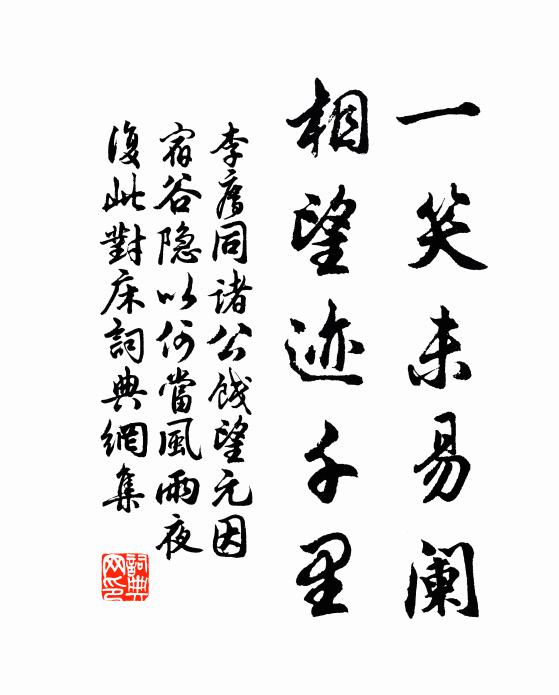 一笑未易阑
相望迹千里
李廌同诸公餞望元因
宿谷隐以何當風雨夜
復此對床詞典網集
詞典
网印